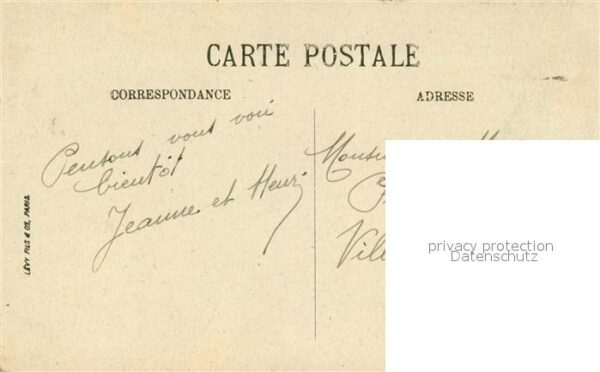 CARTE POSTALE
CORRESPONDANCE
ADRESSE
Pensons vous voir
bientôt
Jeanne et Henri
LÉVY FILS & CIE, PARIS
privacy protection
Datenschutz